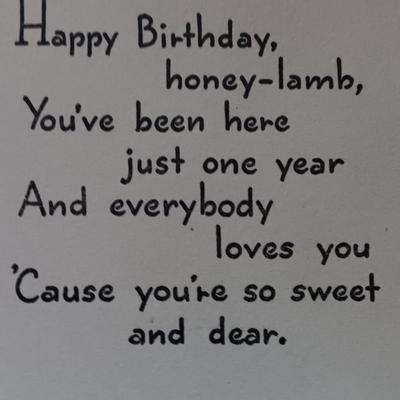 Happy Birthday,
honey-lamb,
You've been here
just one year
And everybody
loves you
'Cause you're so sweet
and dear.